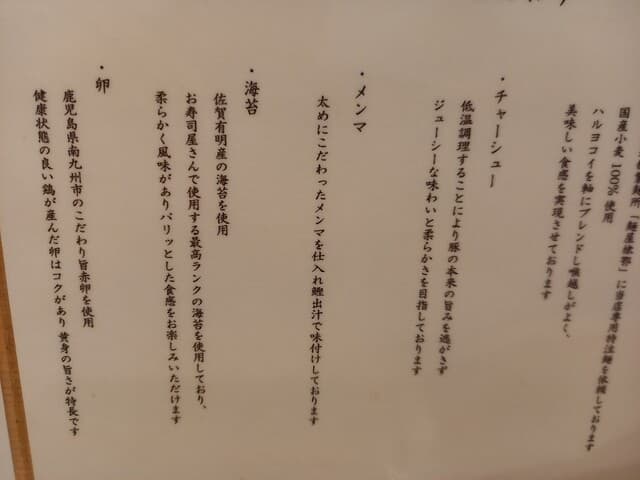 製麺所「麺屋棣鄂」に当店専用特注麺を依頼しております
国産小麦100%使用
ハルヨコイを軸にブレンドし喉越しがよく、
美味しい食感を実現させております
・チャーシュー
低温調理することにより豚の本来の旨みを逃がさず
ジューシーな味わいと柔らかさを目指しております
・メンマ
太めにこだわったメンマを仕入れ鰹出汁で味付けしております
・海苔
佐賀有明産の海苔を使用
お寿司屋さんで使用する最高ランクの海苔を使用しており、
柔らかく風味がありパリッとした食感をお楽しみいただけます
・卵
鹿児島県南九州市のこだわり旨赤卵を使用
健康状態の良い鶏が産んだ卵はコクがあり黄身の旨さが特長です